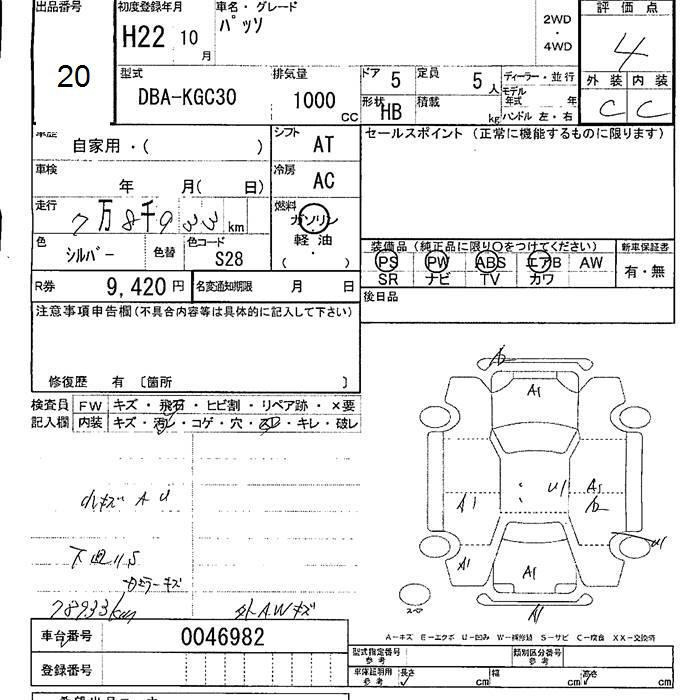 出品番号
20
初度登録年月
H22 10
月
車名・グレード
パッソ
2WD
・
4WD
評 価 点
4
外 装 内 装
C C
型式
DBA-KGC30
排気量
1000
CC
ドア 5
定員 5 人
形状 HB
積載 kg
ディーラー・並行
モデル
年式 年
ハンドル 左・右
車歴
自家用・( )
シフト
AT
セールスポイント (正常に機能するものに限ります)
車検
年 月( 日)
冷房
AC
走行
7万8千933 km
燃料
ガソリン
軽油
( ・ )
色
シルバー
色替
色コード
S28
装備品(純正品に限り○をつけてください)
PS PW ABS エアB AW
SR ナビ TV カワ
新車保証書
有・無
R券 9,420円
名変通知期限 月 日
後日品
注意事項申告欄(不具合内容等は具体的に記入して下さい)
修復歴 有 〔箇所 〕
検査員
記入欄
FW キズ・飛石・ヒビ割・リペア跡・×要
内装 キズ・汚レ・コゲ・穴・スレ・キレ・破レ
小キズ A U
下回りS
78933km
外AWキズ
A1
A1
A1
A1
U1
A1
U1
A－キズ E－エクボ U－凹み W－補修跡 S－サビ C－腐食 XX－交換済
車台番号 0046982
登録番号
型式指定番号
参考
類別区分番号
参考
車庫証明用
参考
長さ cm
幅 cm
高さ cm